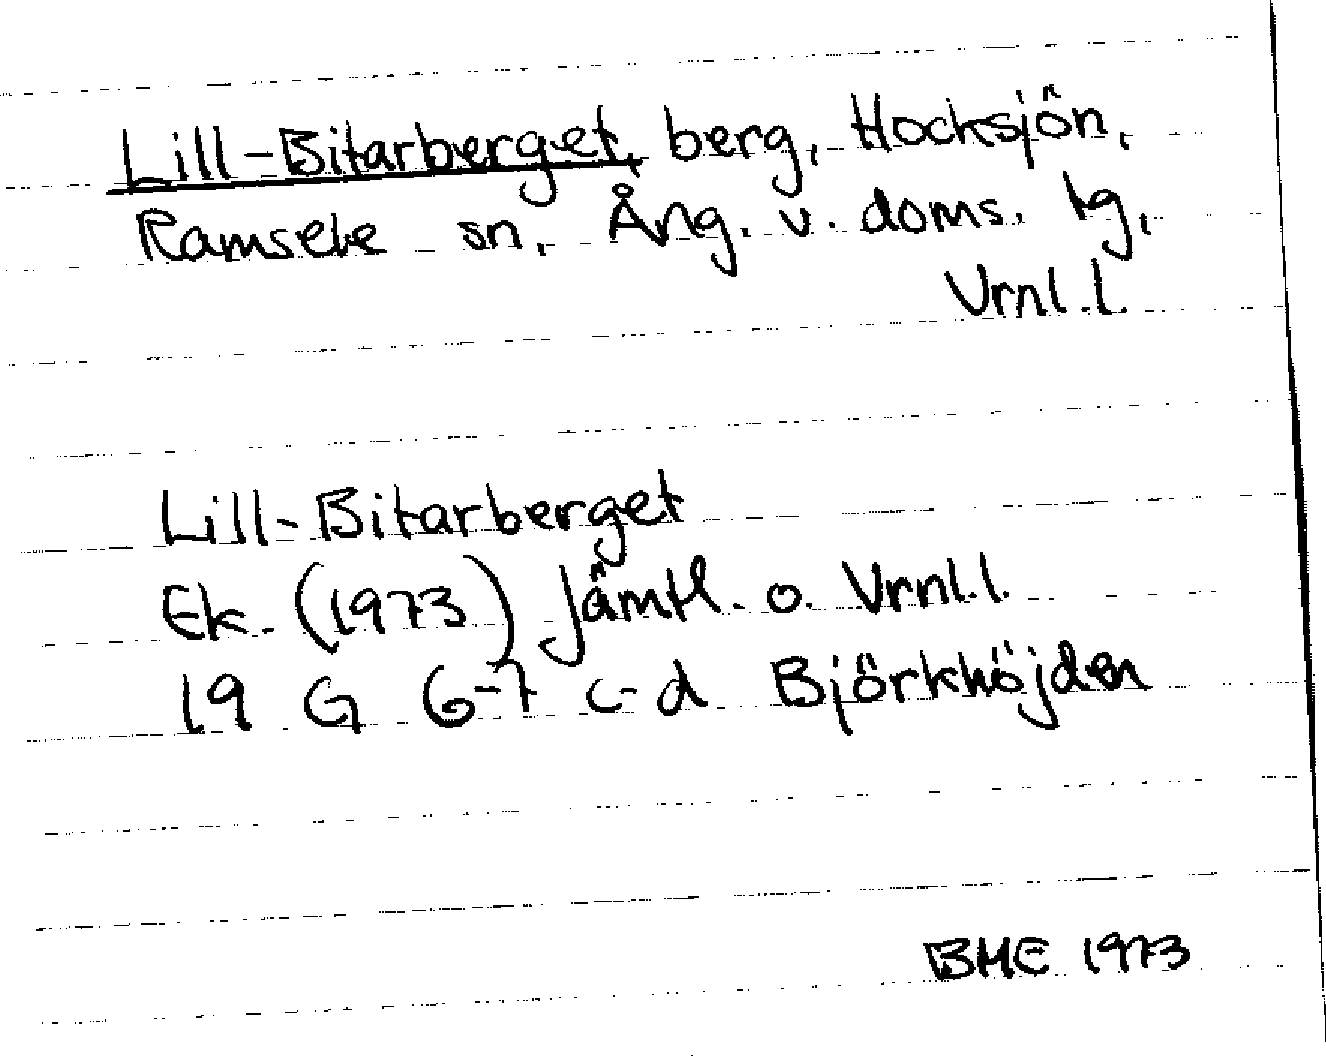 Lill-Bitarberget, berg, Hocksjön,
Ramsele sn, Ång. v. doms. tg,
Vrnl.l.
Lill-Bitarberget
Ek. (1973) Jämtl. o. Vrnl.l.
19 G 6-7 c-d Björkhöjden
BME 1973